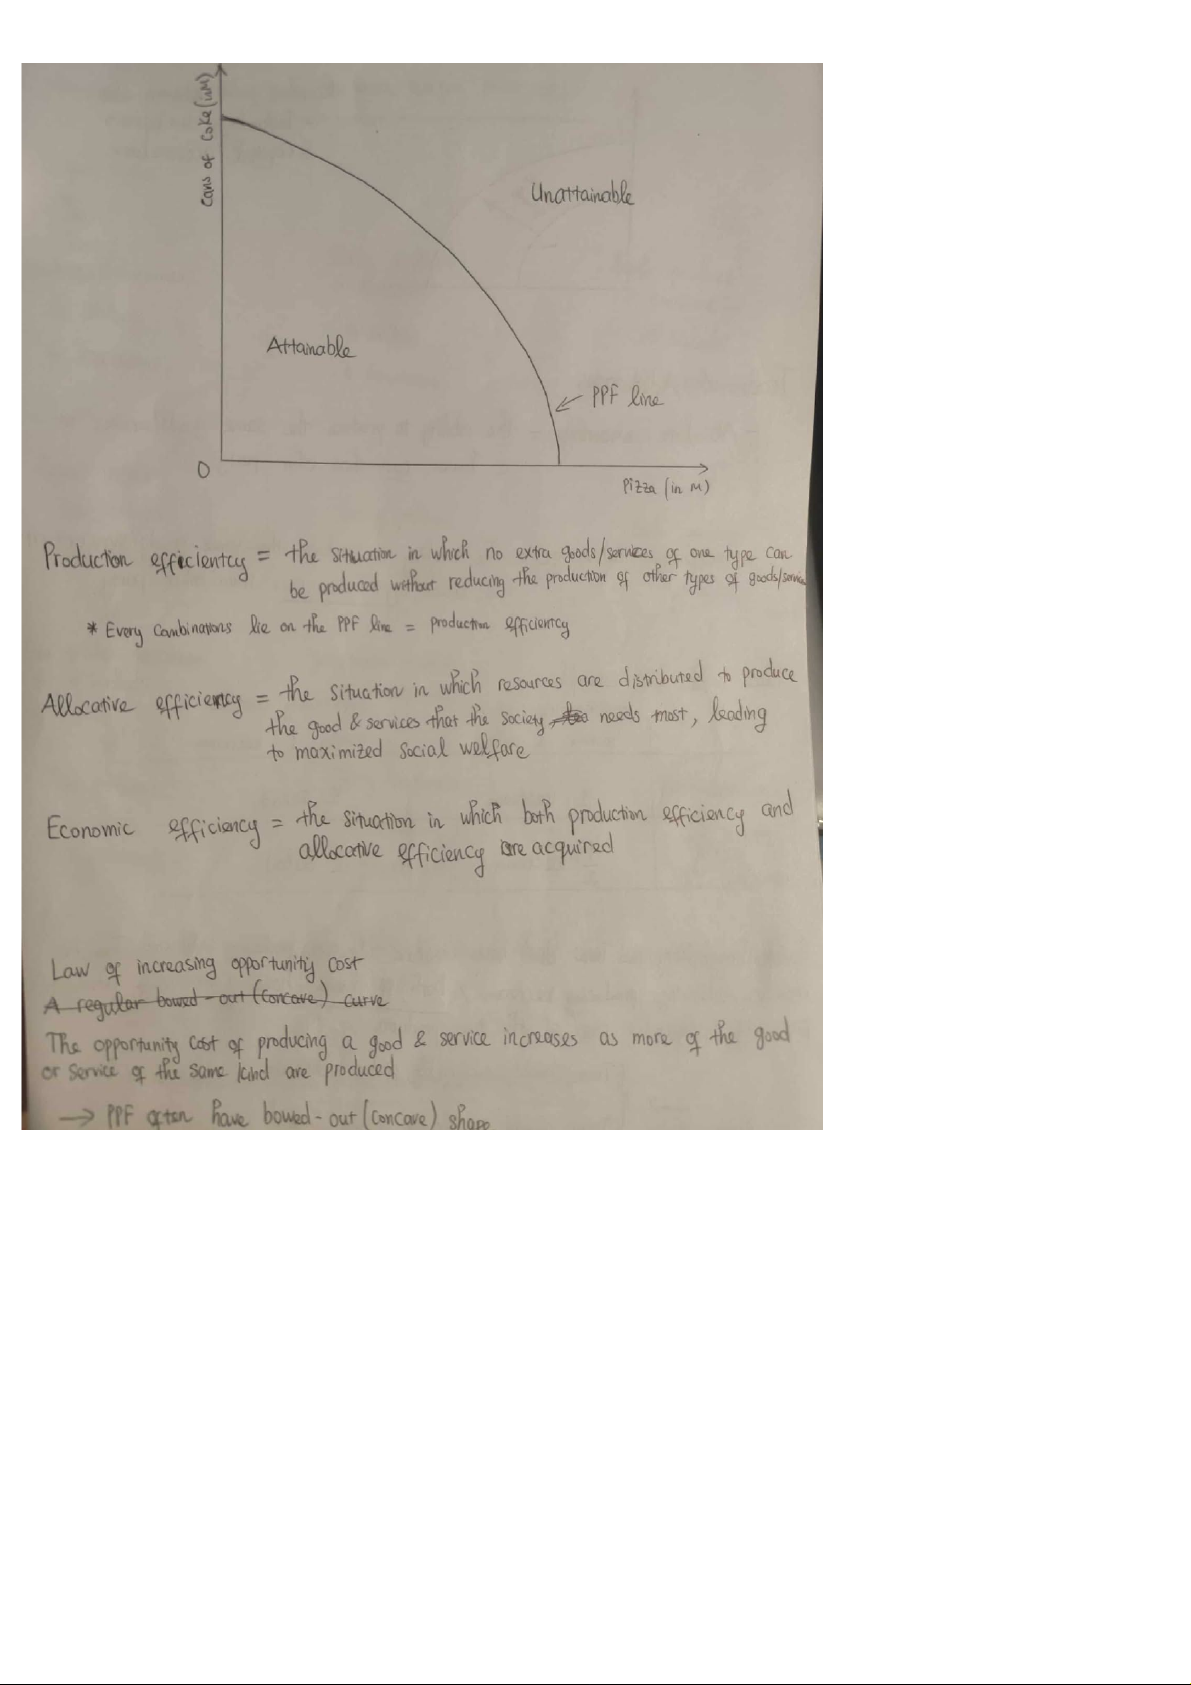 Cans of Coke (in M)
Unattainable
Attainable
PPF line
0
Pizza (in M)
Production efficientcy = the situation in which no extra goods/services of one type can
be produced without reducing the production of other types of goods/service
* Every combinations lie on the PPF line = production efficientcy
Allocative efficiency = the situation in which resources are distributed to produce
the good & services that the society needs most, leading
to maximized social welfare
Economic efficiency = the situation in which both production efficiency and
allocative efficiency are acquired
Law of increasing opportunity cost
A regular bowed-out (concave) curve
The opportunity cost of producing a good & service increases as more of the good
or service of the same kind are produced
→ PPF often have bowed-out (concave) shape